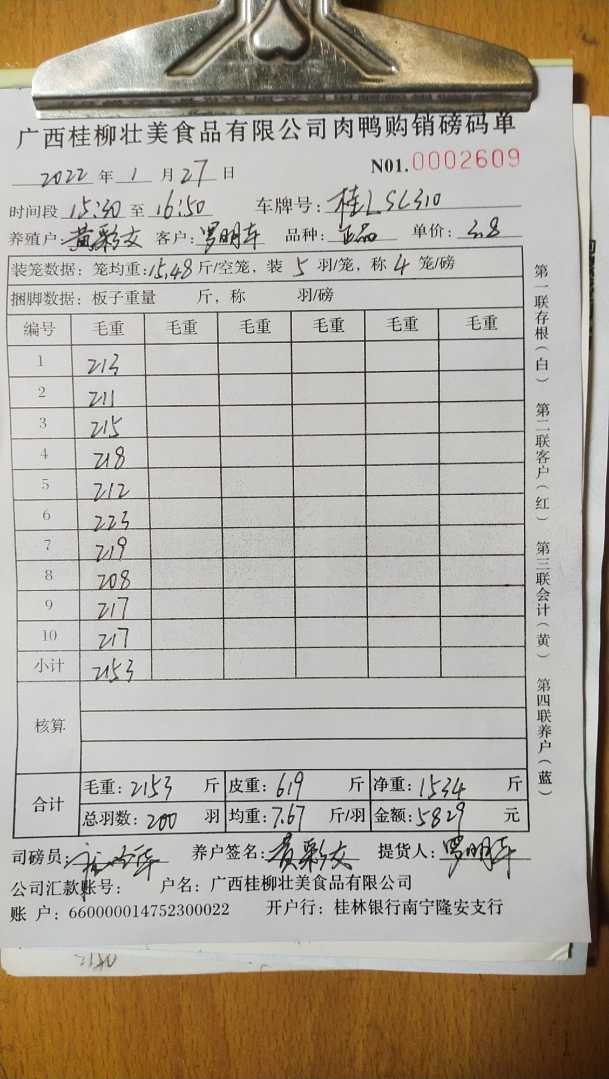 广西桂柳壮美食品有限公司肉鸭购销磅码单
2022 年 1 月 27 日 N01.0002609
时间段 15:30 至 16:50 车牌号: 桂LSC310
养殖户: 黄彩文 客户: 罗明车 品种: 正品 单价: 3.8
装笼数据: 笼均重:15.48 斤/空笼, 装 5 羽/笼, 称 4 笼/磅
捆脚数据: 板子重量 斤, 称 羽/磅
编号 毛重 毛重 毛重 毛重 毛重 毛重
1 213
2 211
3 215
4 218
5 212
6 223
7 219
8 208
9 217
10 217
小计 2153
核算
合计 毛重: 2153 斤 皮重: 619 斤 净重: 1534 斤
总羽数: 200 羽 均重: 7.67 斤/羽 金额: 5829 元
司磅员: 养户签名: 黄彩文 提货人: 罗明车
公司汇款账号: 户名: 广西桂柳壮美食品有限公司
账 户: 660000014752300022 开户行: 桂林银行南宁隆安支行
第一联存根(白) 第二联客户(红) 第三联会计(黄) 第四联养户(蓝)